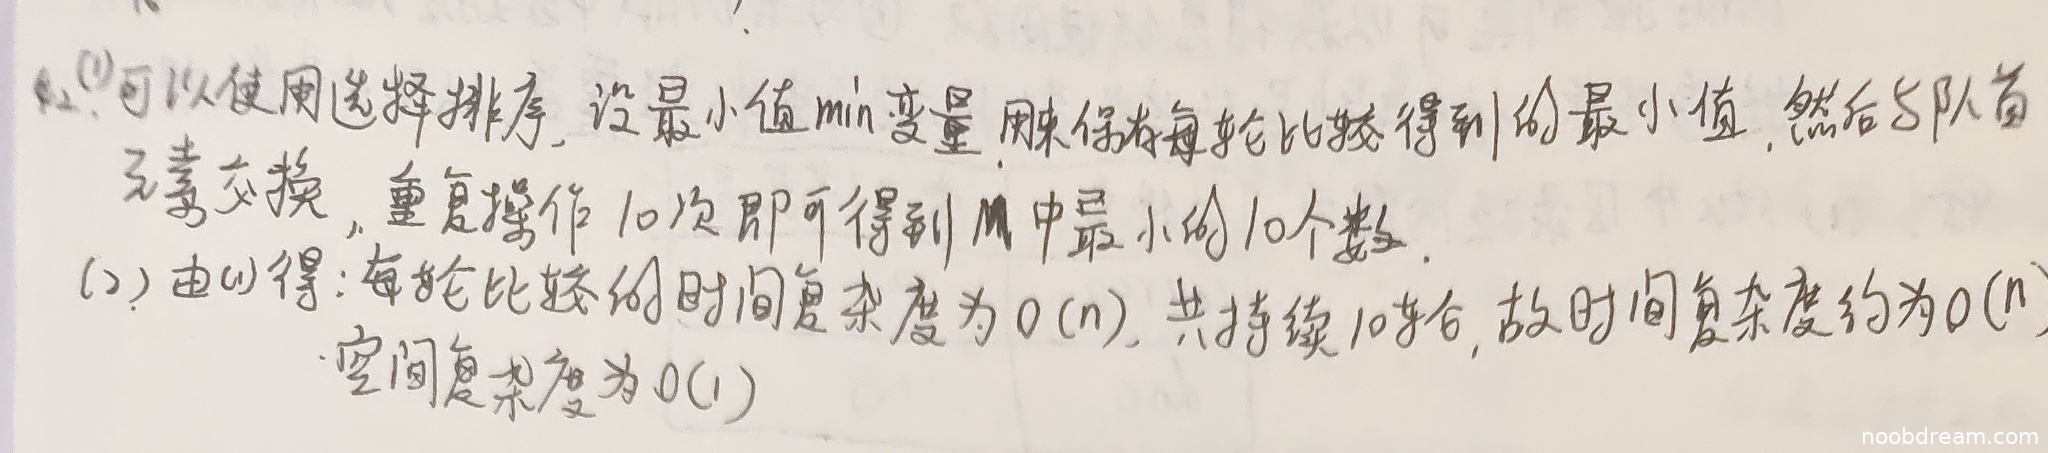 42.(1)可以使用选择排序,设最小值min变量,用来保存每轮比较得到的最小值,然后与队首
元素交换,重复操作10次即可得到M中最小的10个数.
(2)由(1)得:每轮比较的时间复杂度为O(n),共持续10轮,故时间复杂度约为O(n)
空间复杂度为O(1)
noobdream.com